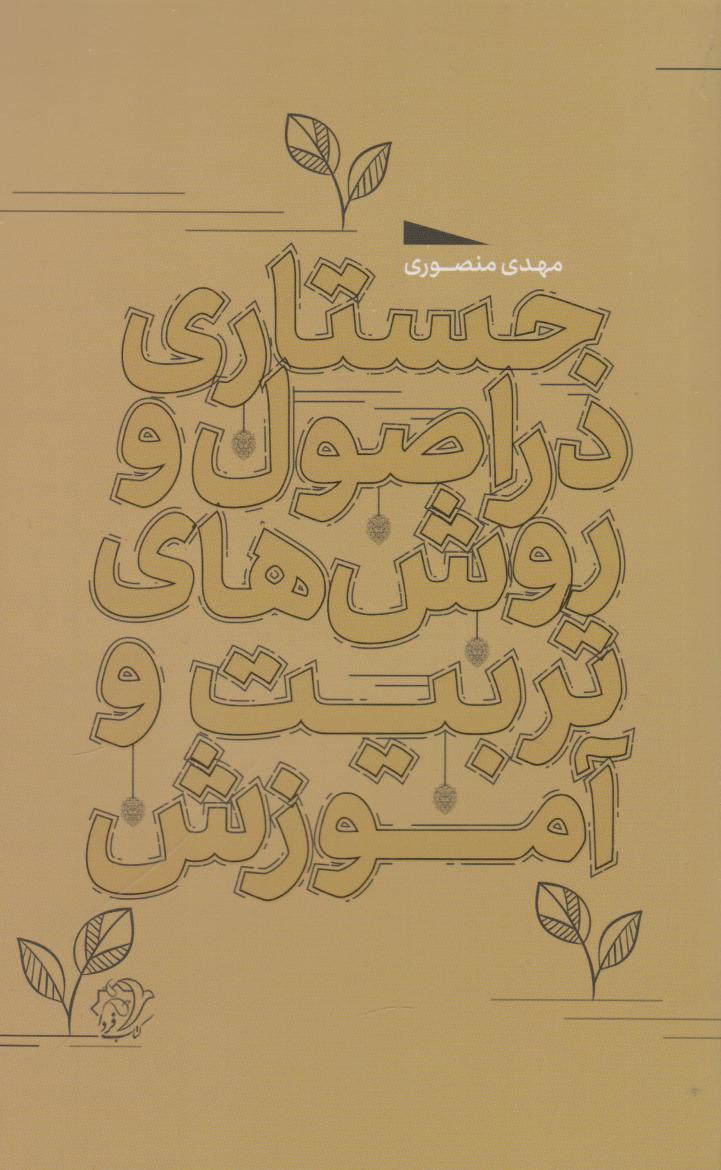 مهدی منصوری
جستاری
در اصول و
روش‌های
تربیت و
آموزش
کتاب فردا